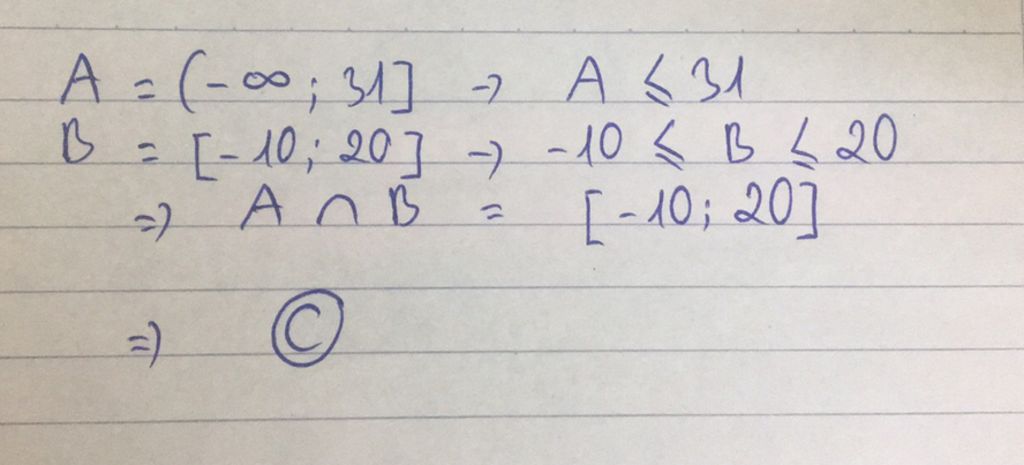 A = (-∞; 31] → A ⩽ 31
B = [-10; 20] → -10 ⩽ B ⩽ 20
⇒ A ∩ B = [-10; 20]
⇒ Ⓒ